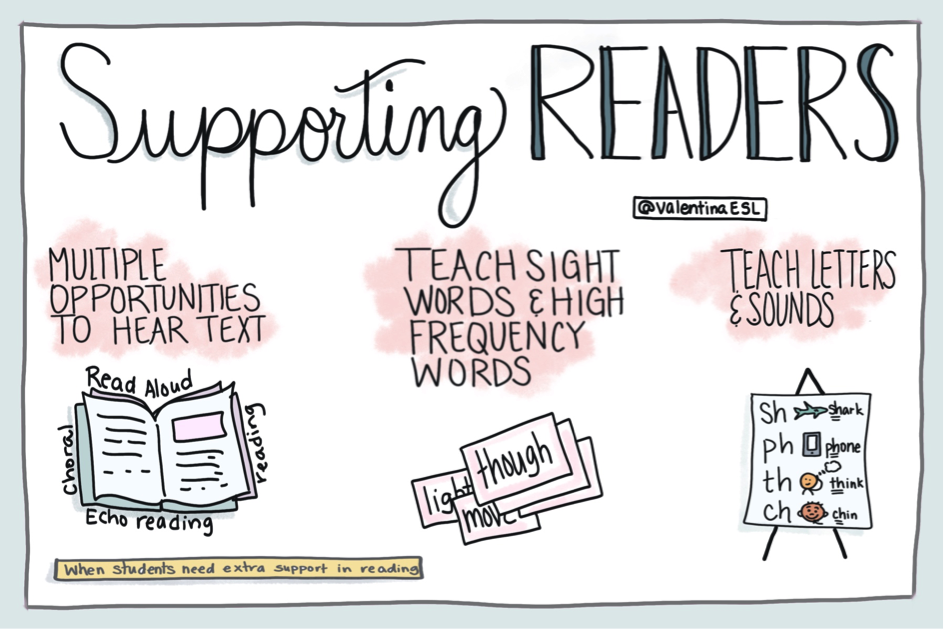 Supporting READERS
@ValentinaESL
MULTIPLE
OPPORTUNITIES
TO HEAR TEXT
Read Aloud
choral
reading
Echo reading
TEACH SIGHT
WORDS & HIGH
FREQUENCY
WORDS
though
light
move
TEACH LETTERS
& SOUNDS
Sh shark
ph phone
th think
ch chin
When students need extra support in reading